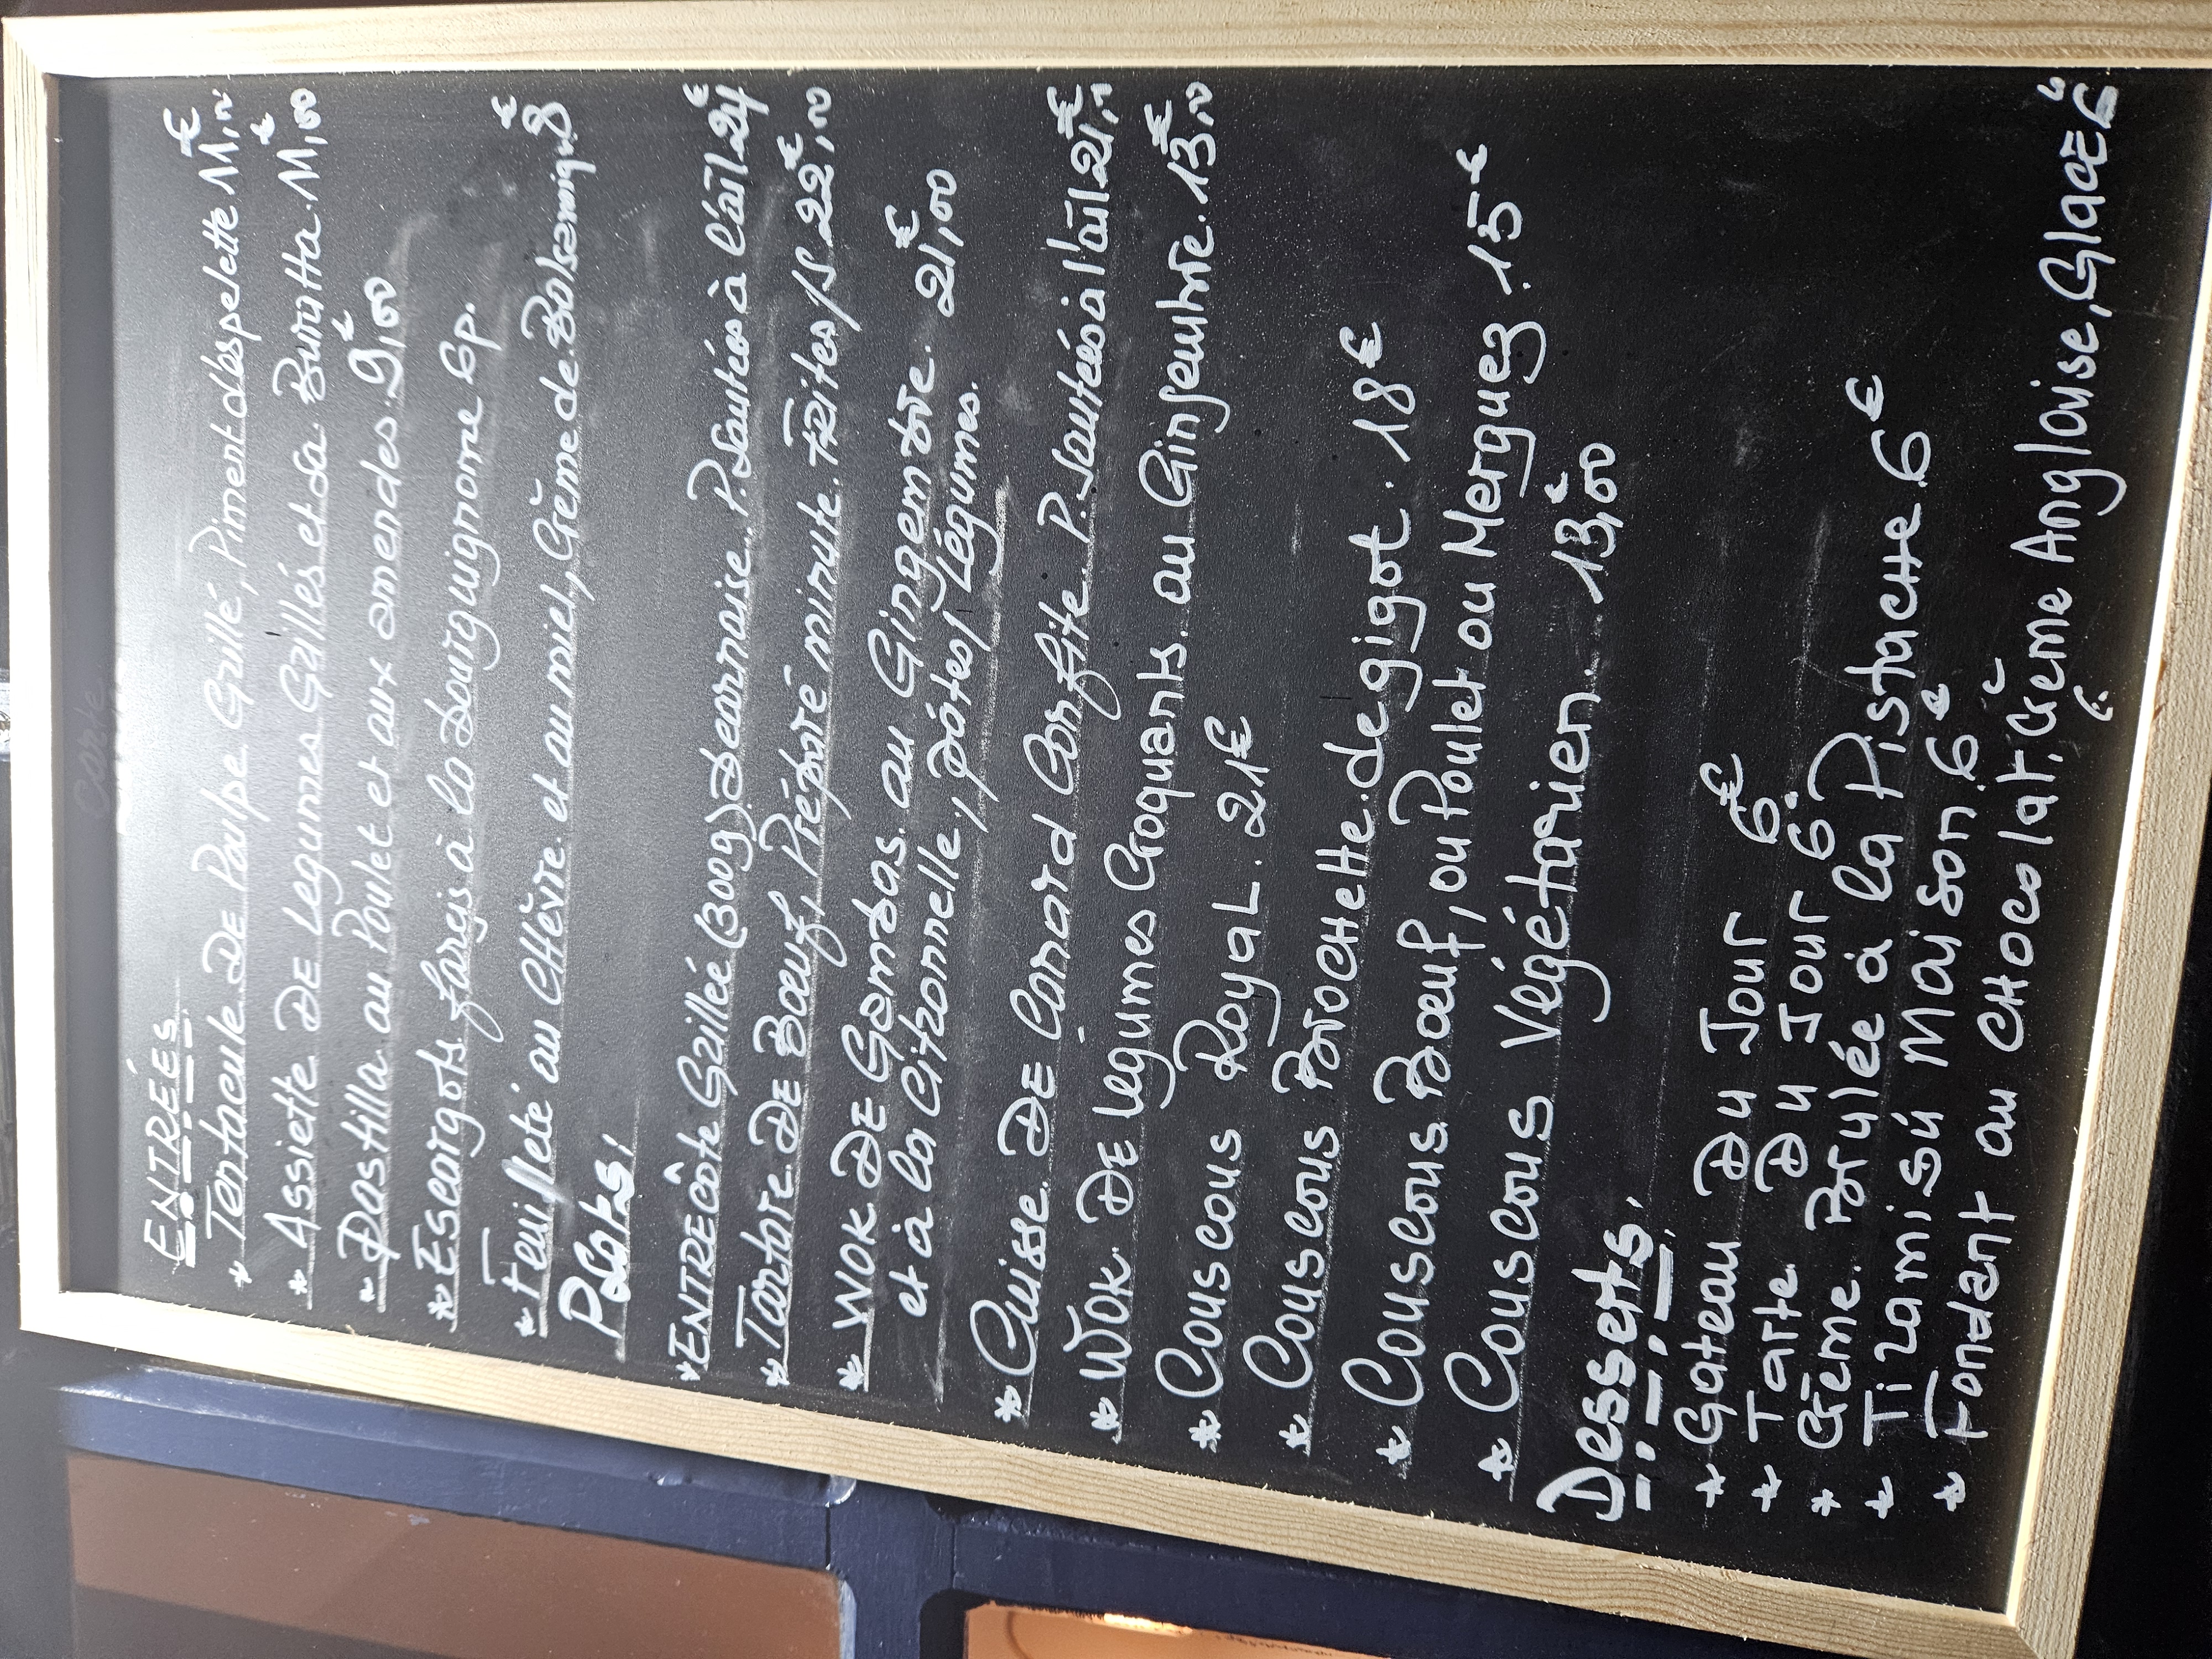 Carte
ENTRÉES
* Tentacule. DE Poulpe Grillé, Piment d'espelette 11,00€
* Assiette DE Legunmes Grillés et sa Burratta. 11,00€
* Pastilla au Poulet et aux amendes. 9,00€
* Escargots farçis à la Bourguignonne 6p.
* Feuilleté au CHèvre. et au miel, Crème de Balsamique 8€
Plats,
* ENTRECôte Grillée (300g) Bearnaise. P. Sautées à l'aïl 24€
* Tartare. DE Bœuf, Préparé minute. FRites/S 22,00€
* WOK DE Gambas. au Gingembre
et à la Citronnelle, pâtes, Légumes. 21,00€
* Cuisse. DE Canard Confite. P. Sautées à l'aïl 21,00€
* WOK. DE Legumes Croquants. au Ginjembre. 13,00€
* Couscous Royal. 21€
* Couscous BroCHette. de gigot. 18€
* Couscous. Bœuf, ou Poulet ou Merguez. 15€
* Couscous Végétarien. 13,00€
Desserts.
* Gateau Du Jour 6€
* Tarte. Du Jour 6€
* Crème. Brulée à la PistacHe. 6€
* Tiramisú Maison. 6€
* Fondant au CHocolat, Crème Anglaise, Glace 6€